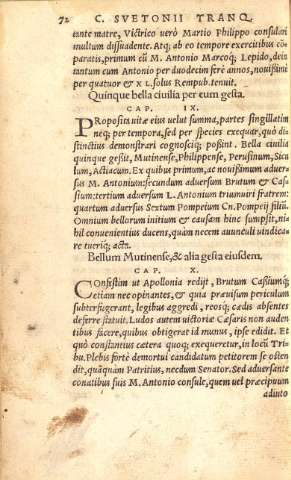 72 C. SVETONII TRANQ.
tante matre, Victrico uerò Martio Philippo consulari
multum dissuadente. Atq; ab eo tempore exercitibus cō
paratis, primum cū M. Antonio Marcoq; Lepido, dein
tantum cum Antonio per duodecim ferè annos, nouissimè
per quatuor & xL. solus Rempub. tenuit.
Quinque bella ciuilia per eum gesta.
CAP. IX.
PRoposita uitæ eius uelut summa, partes singillatim
neq; per tempora, sed per species exequar, quò di-
stinctius demonstrari cognosciq; possint. Bella ciuilia
quinque gessit, Mutinense, Philippense, Perusinum, Sicu
lum, Actiacum. Ex quibus primum, ac nouissimum aduer
sus M. Antonium: secundum aduersus Brutum & Cas
sium: tertium aduersum L. Antonium triumuiri fratrem:
quartum aduersus Sextum Pompeium Cn. Pompeij filiū.
Omnium bellorum initium & causam hinc sumpsit, ni-
hil conuenientius ducens, quàm necem auunculi uindica-
re tueriq; acta.
Bellum Mutinense, & alia gesta eiusdem.
CAP. X.
COnfestim ut Apollonia redijt, Brutum Cassiumq;
etiam nec opinantes, & quia præuisum periculum
subterfugerant, legibus aggredi, reosq; cædis absentes
deferre statuit. Ludos autem uictoriæ Cæsaris non auden
tibus facere, quibus obtigerat id munus, ipse edidit. Et
quò constantius cætera quoq; exequeretur, in locū Tribu
bu. Plebis fortè demortui candidatum petitorem se osten
dit, quāquàm Patritius, necdum Senator. Sed aduersante
conatibus suis M. Antonio consule, quem uel præcipuum
adiuto